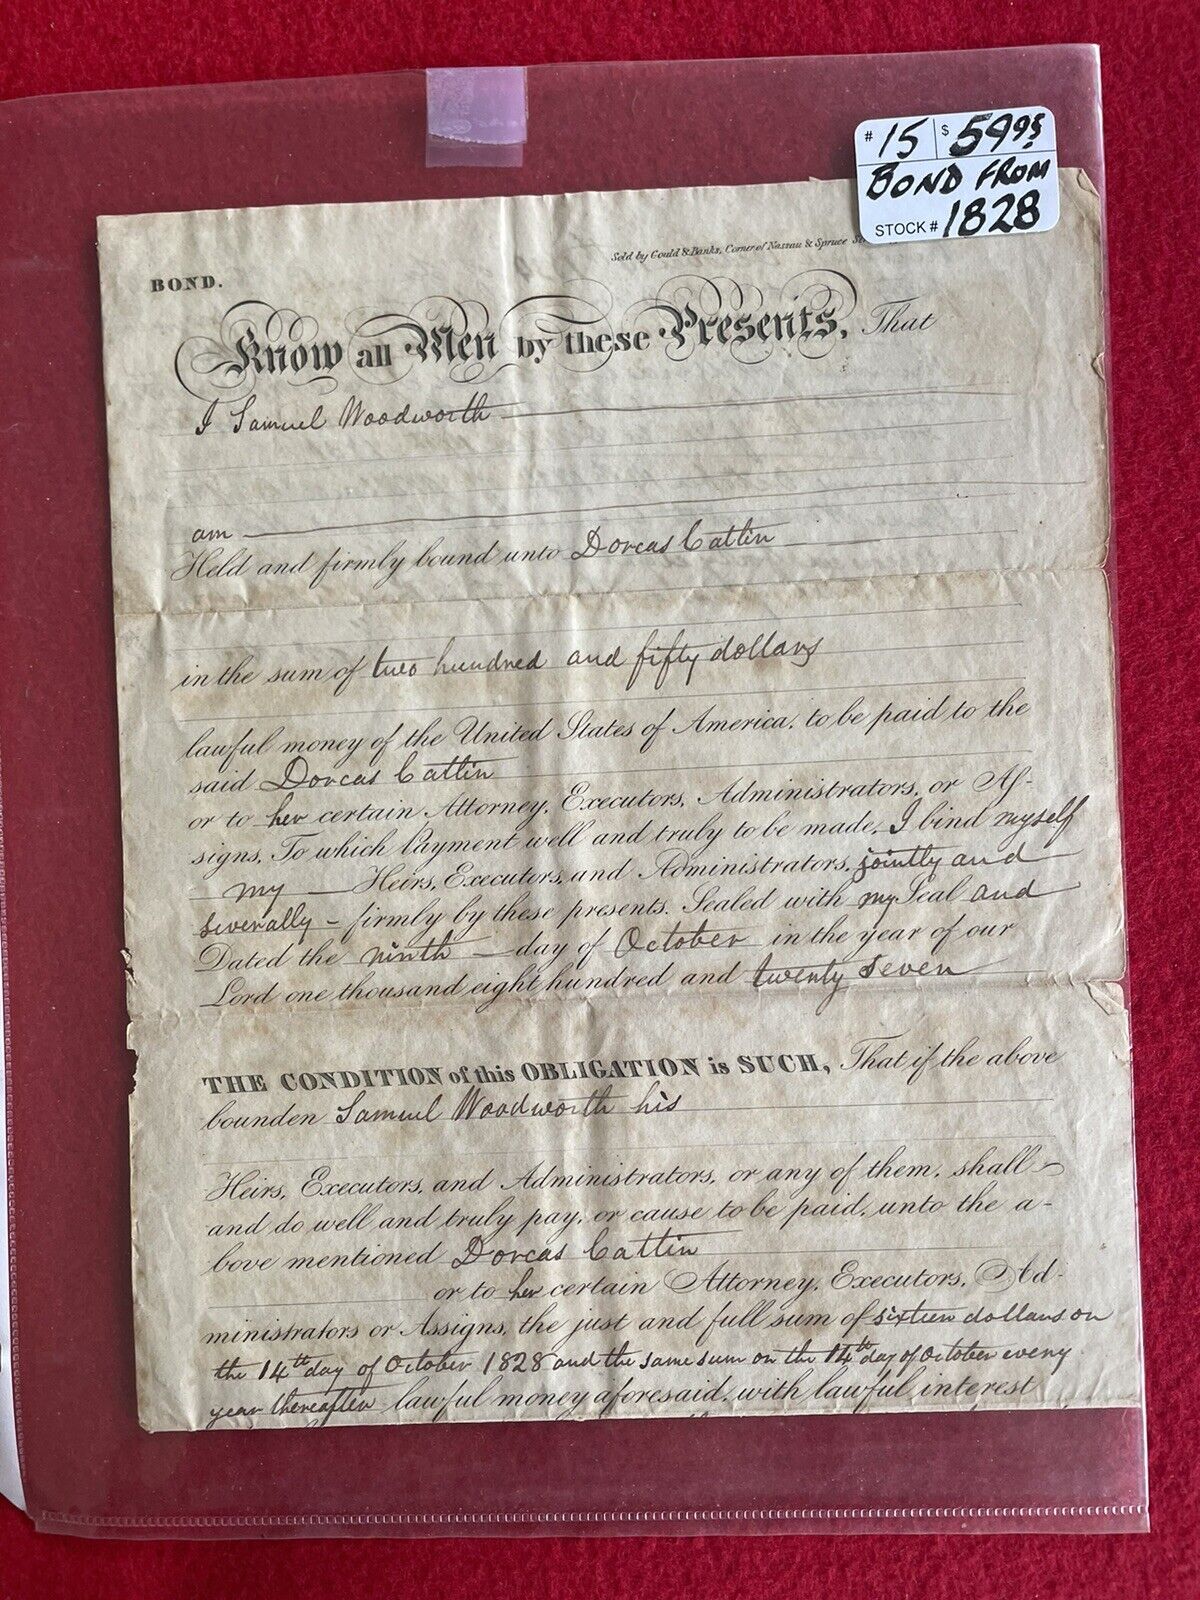 # 15 $ 59.95
BOND FROM
STOCK # 1828
Sold by Gould & Banks, Corner of Nassau & Spruce
BOND.
Know all Men by these Presents, That
I Samuel Woodworth
am
Held and firmly bound unto Dorcas Catlin
in the sum of two hundred and fifty dollars
lawful money of the United States of America, to be paid to the
said Dorcas Catlin
or to her certain Attorney, Executors, Administrators, or As-
signs, To which Payment well and truly to be made, I bind myself
my Heirs, Executors, and Administrators, jointly and
severally – firmly by these presents. Sealed with my Seal and
Dated the ninth day of October in the year of our
Lord one thousand eight hundred and twenty seven
THE CONDITION of this OBLIGATION is SUCH, That if the above
bounden Samuel Woodworth his
Heirs, Executors, and Administrators, or any of them, shall
and do well and truly pay, or cause to be paid, unto the a-
bove mentioned Dorcas Catlin
or to her certain Attorney, Executors, Ad-
ministrators or Assigns, the just and full sum of sixteen dollars on
the 14th day of October 1828 and the same sum on the 14th day of October every
year thereafter lawful money aforesaid, with lawful interest